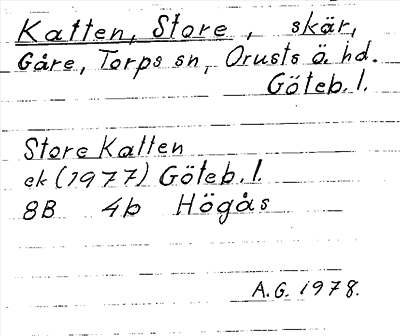 Katten, Store, skär,
Gåre, Torps sn, Orusts ö. hd.
Göteb. l.
Store Katten
ek (1977) Göteb. l.
8B 4b Högås
A.G. 1978.